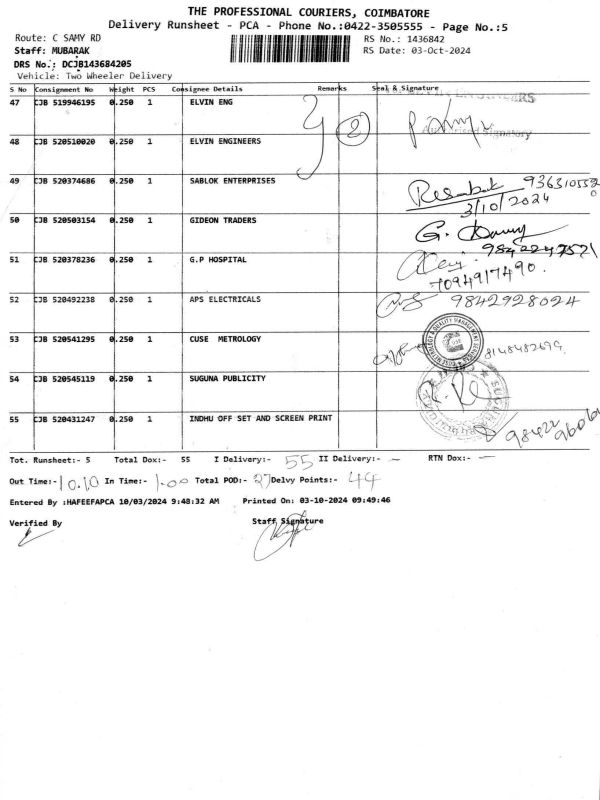 THE PROFESSIONAL COURIERS, COIMBATORE
Delivery Runsheet - PCA - Phone No.:0422-3505555 - Page No.:5
Route: C SAMY RD RS No.: 1436842
Staff: MUBARAK RS Date: 03-Oct-2024
DRS No.: DCJB143684205
Vehicle: Two Wheeler Delivery
S No Consignment No Weight PCS Consignee Details Remarks Seal & Signature
47 CJB 519946195 0.250 1 ELVIN ENG
2
Authorised Signatory
48 CJB 520510020 0.250 1 ELVIN ENGINEERS
49 CJB 520374686 0.250 1 SABLOK ENTERPRISES
3/10/2024
50 CJB 520503154 0.250 1 GIDEON TRADERS
51 CJB 520378236 0.250 1 G.P HOSPITAL
7094917490.
52 CJB 520492238 0.250 1 APS ELECTRICALS 9842928024
53 CJB 520541295 0.250 1 CUSE METROLOGY
54 CJB 520545119 0.250 1 SUGUNA PUBLICITY
55 CJB 520431247 0.250 1 INDHU OFF SET AND SCREEN PRINT
Tot. Runsheet:- 5 Total Dox:- 55 I Delivery:- 55 II Delivery:- — RTN Dox:- —
Out Time:- 10.10 In Time:- 1.00 Total POD:- 27 Delvy Points:- 44
Entered By :HAFEEFAPCA 10/03/2024 9:48:32 AM Printed On: 03-10-2024 09:49:46
Verified By Staff Signature